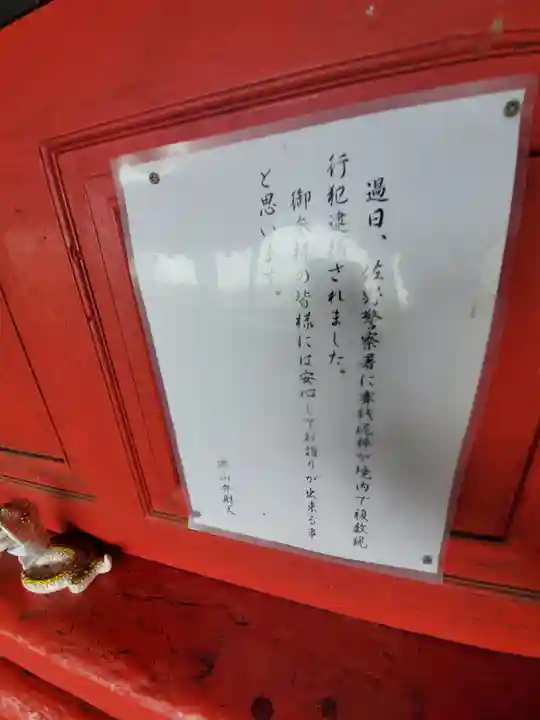 過日、佐野警察署に賽銭泥棒が境内で複数現
行犯逮捕されました。
御参拝の皆様には安心してお詣りが出来る事
と思います。
山弁財天